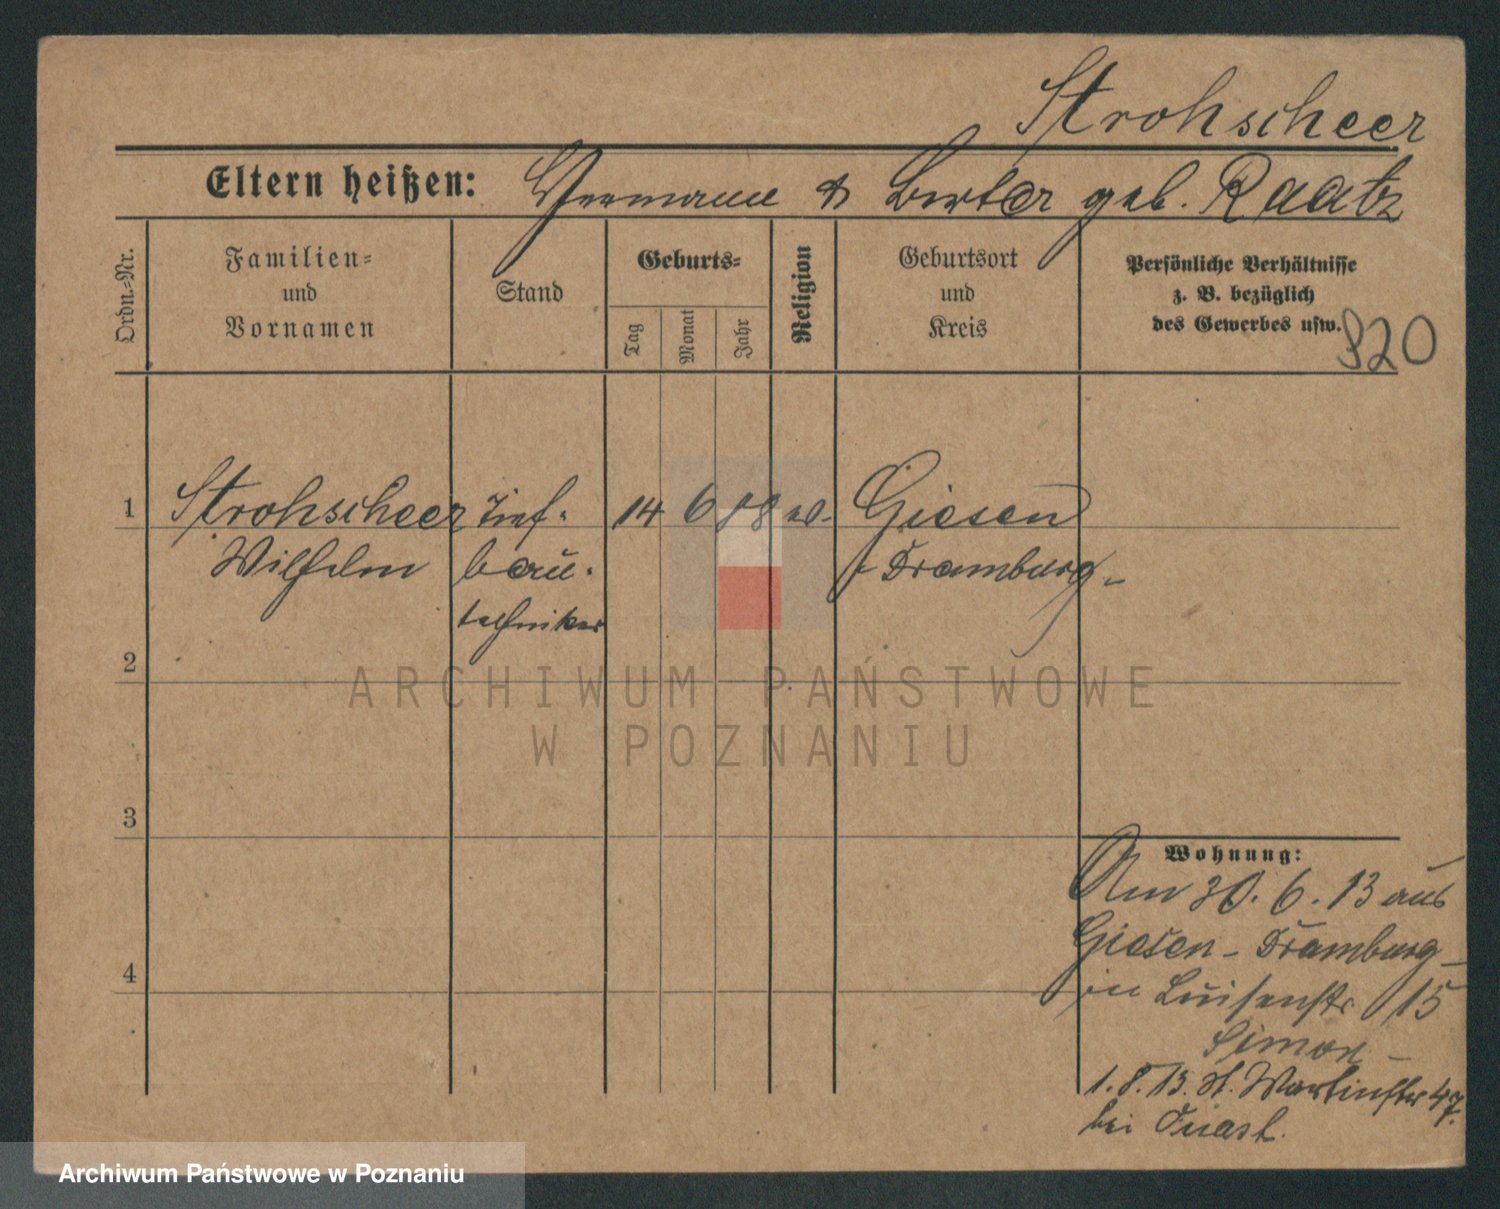 Strohscheer
Eltern heißen: Hermann & Berta geb. Raatz
Ordn.-Nr.
Familien-
und
Vornamen
Stand
Geburts-
Tag
Monat
Jahr
Religion
Geburtsort
und
Kreis
Persönliche Verhältnisse
z. B. bezüglich
des Gewerbes usw.
820
1 Strohscheer Tief- 14 6 88 Giesen
Wilhelm bau- Dramburg-
techniker
2
3
4
Wohnung:
Am 30. 6. 13 aus
Giesen - Dramburg -
in Luisenstr 15
Simon -
1. 8. 13. St. Martinstr 47.
bei
ARCHIWUM PAŃSTWOWE
W POZNANIU
Archiwum Państwowe w Poznaniu